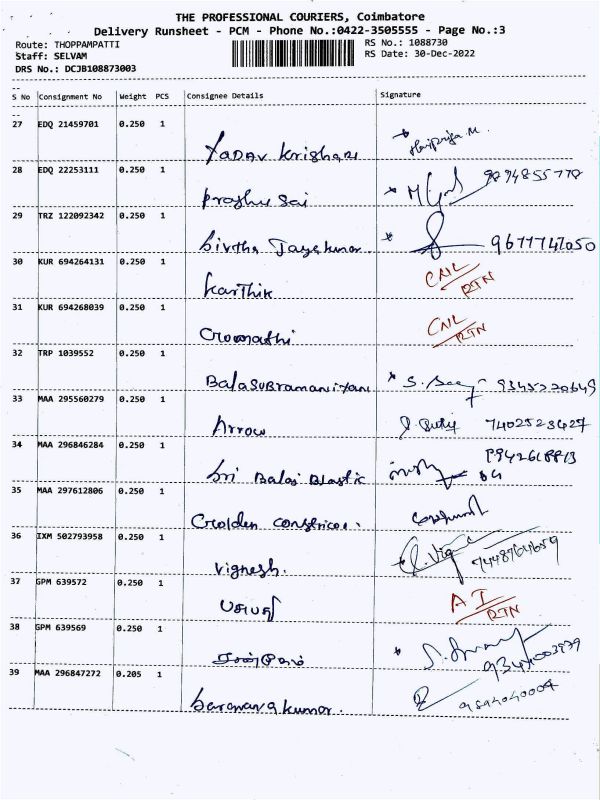 THE PROFESSIONAL COURIERS, Coimbatore
Delivery Runsheet - PCM - Phone No.:0422-3505555 - Page No.:3
Route: THOPPAMPATTI
RS No.: 1088730
Staff: SELVAM
RS Date: 30-Dec-2022
DRS No.: DCJB108873003
S No Consignment No Weight PCS Consignee Details Signature
27 EDQ 21459701 0.250 1
Yadav Krishan
28 EDQ 22253111 0.250 1
Prabhu Sai 9894855778
29 TRZ 122092342 0.250 1
9677747050
30 KUR 694264131 0.250 1
Karthik CNL RTN
31 KUR 694268039 0.250 1
Gomathi CNL RTN
32 TRP 1039552 0.250 1
Balasubramaniyan
33 MAA 295560279 0.250 1
Arrow 7402523427
34 MAA 296846284 0.250 1
Sri Balaji Plastic
35 MAA 297612806 0.250 1
Golden
36 IXM 502793958 0.250 1
Vignesh. 7448764659
37 GPM 639572 0.250 1
பசுபதி A I RTN
38 GPM 639569 0.250 1
39 MAA 296847272 0.205 1
Saravanakumar.